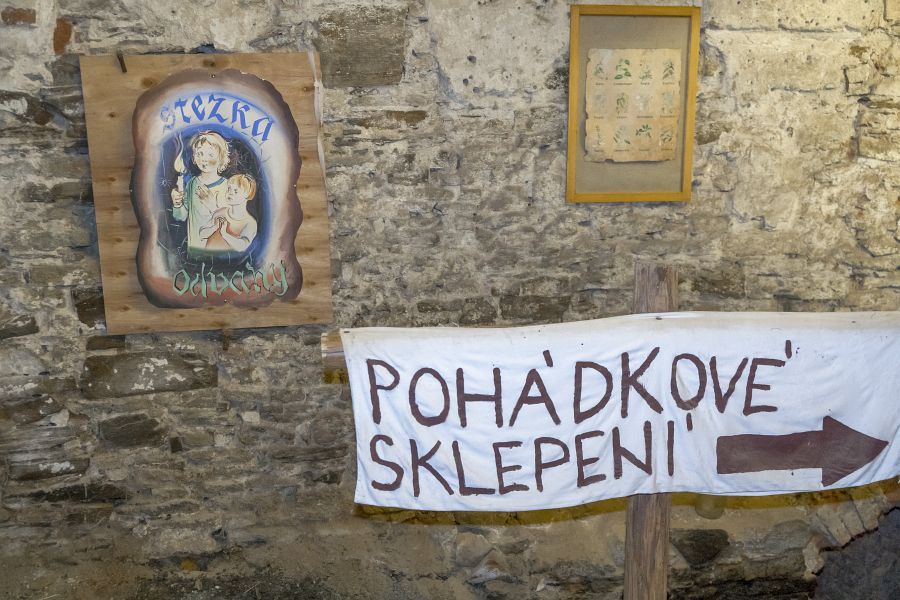 Stezka
odvahy
POHÁDKOVÉ
SKLEPENÍ